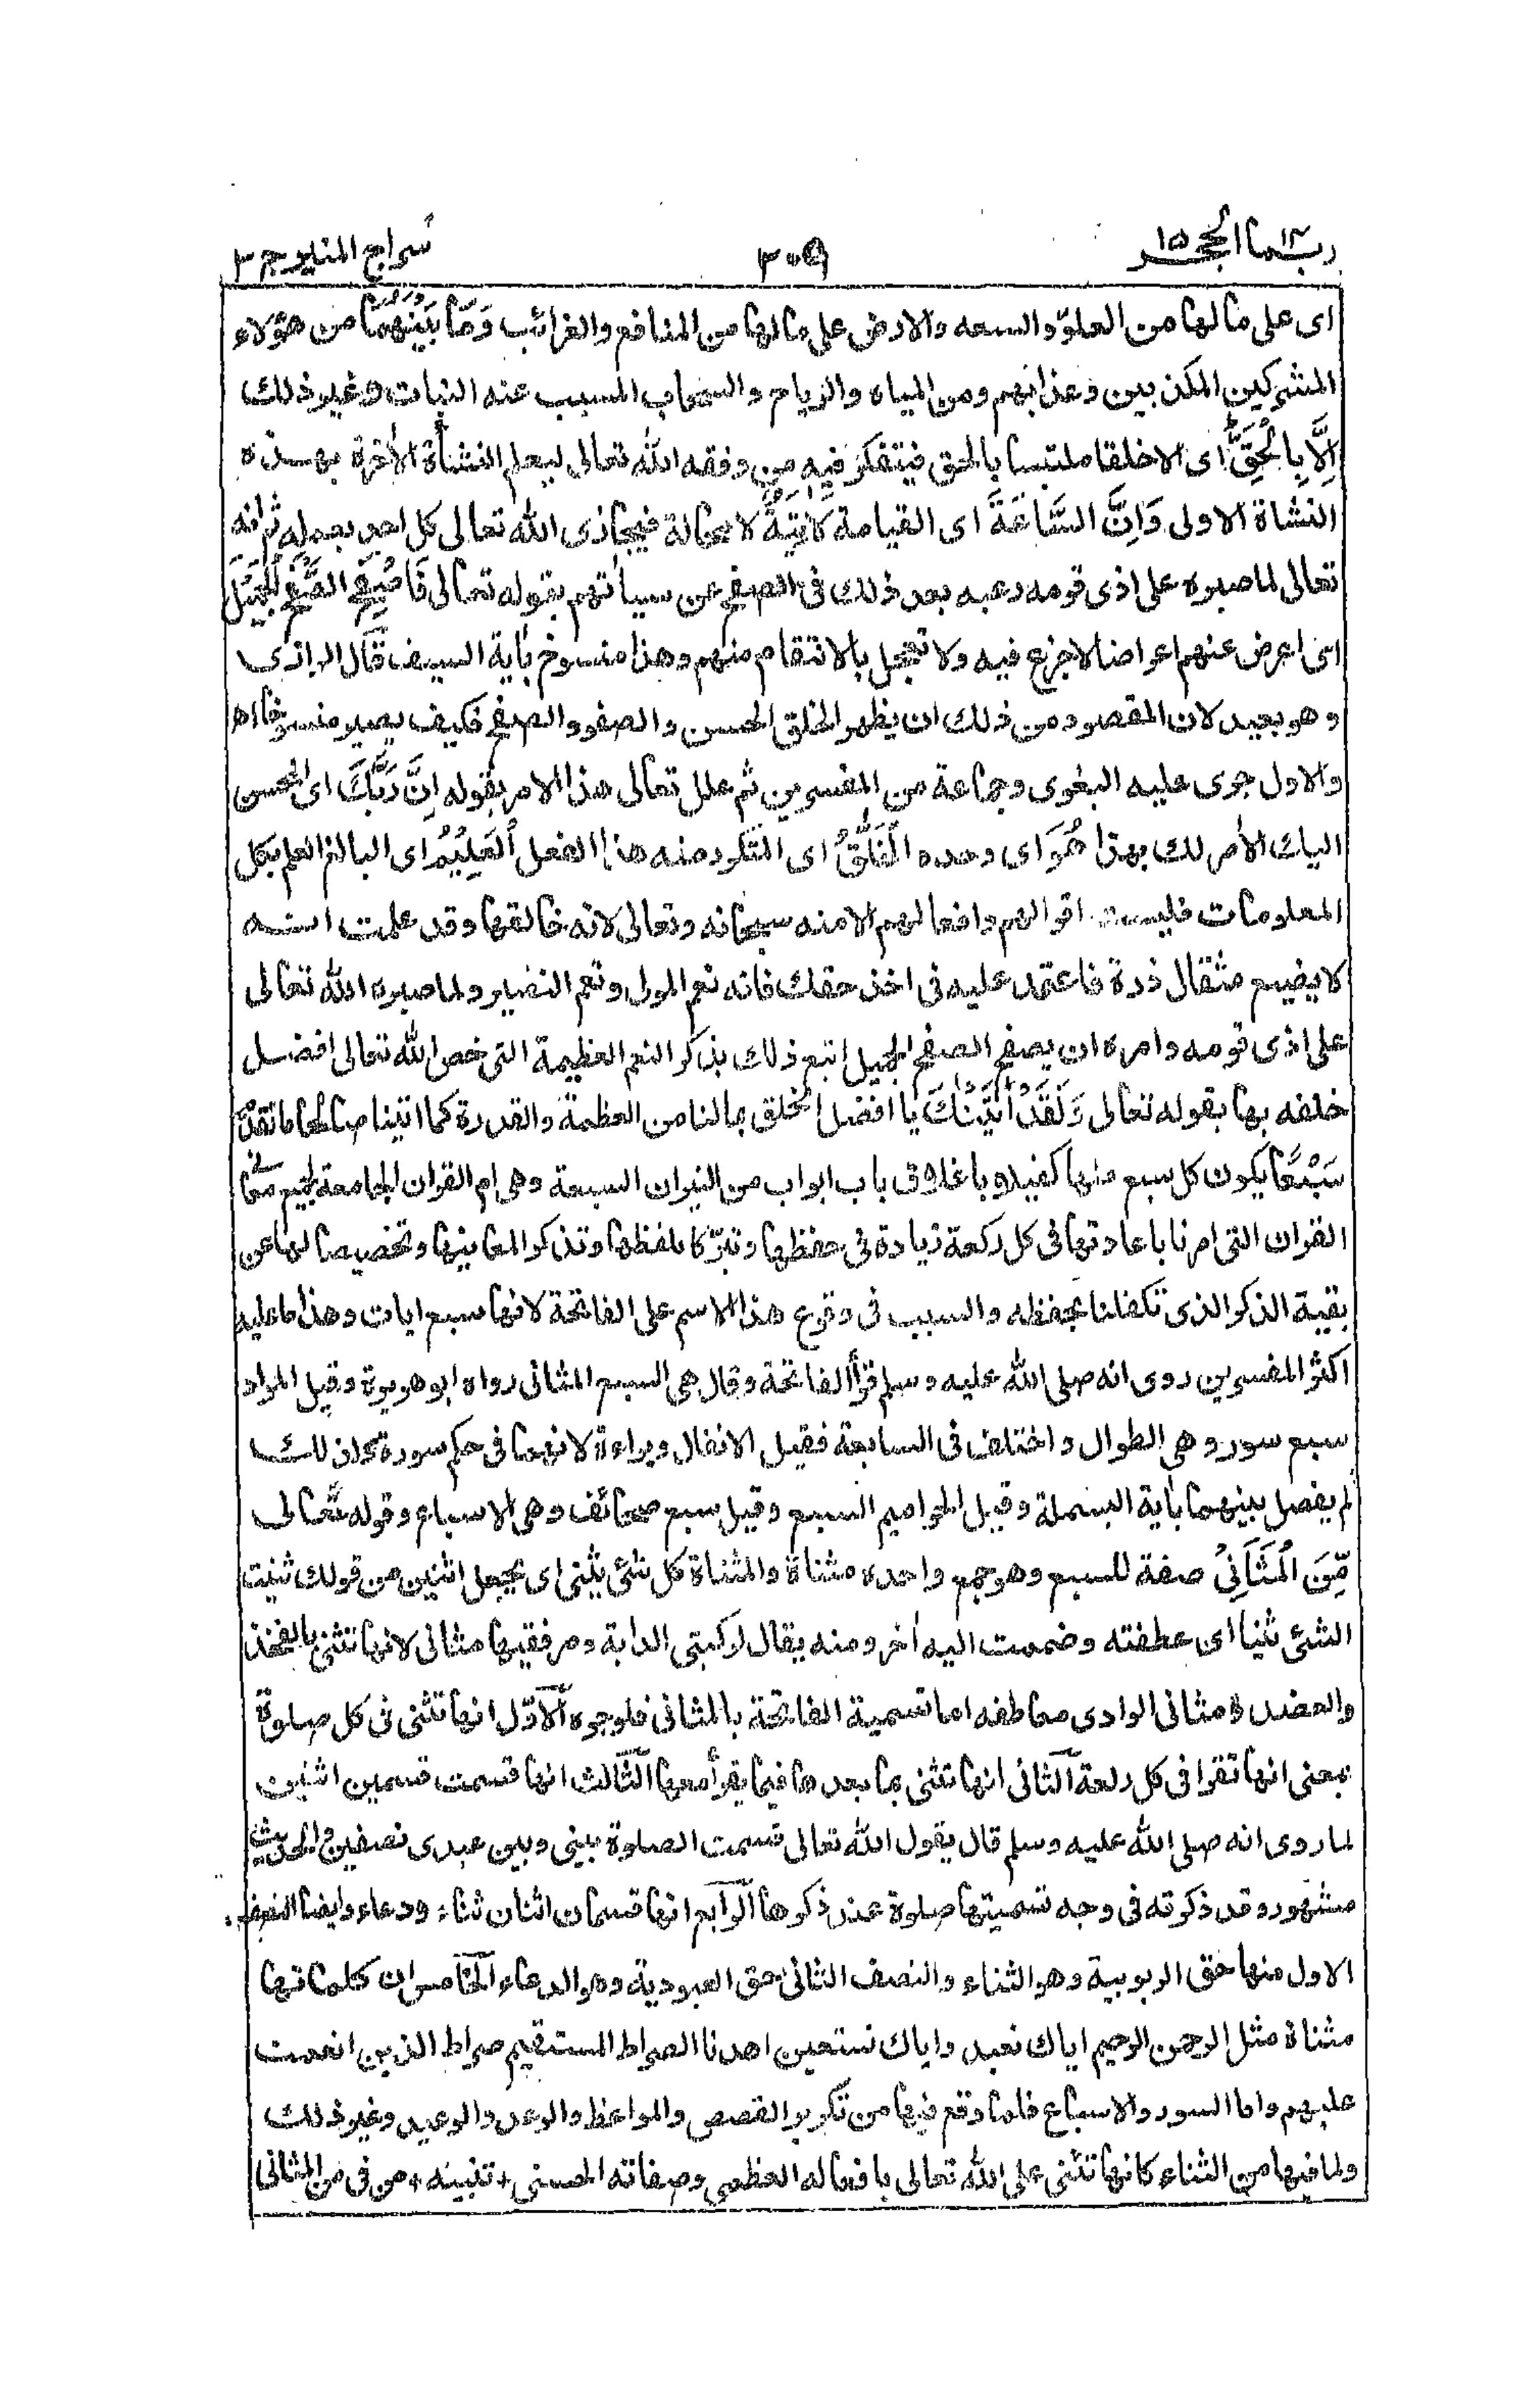 ربما ١٤ الحجر ١٥
٣٠٩
سراج المنير ج ٢
اى على ما لها من العلو والسعه والارض على ما لها من المنافع والغرائب وَمَا بَيْنَهُمَا من هؤلاء
المشركين المكذبين وعذابهم ومن المياه والرياح والسحاب المسبب عنه النبات وغير ذلك
اِلَّا بِالْحَقِّ اى الا خلقا ملتبسا بالحق فيتفكر فيه من وفقه الله تعالى ليعلم النشأة الاخرة بهذه
النشاة الاولى وَاِنَّ السَّاعَةَ اى القيامة لَاٰتِيَةٌ لا محالة فيجازى الله تعالى كل احد بعمله ثم انه
تعالى لما صبره على اذى قومه رغبه بعد ذلك فى الصفح عن سيأتهم بقوله تعالى فَاصْفَحِ الصَّفْحَ الْجَمِيْلَ
اى اعرض عنهم اعراضا لا جزع فيه ولا تعجل بالانتقام منهم وهذا منسوخ بأية السيف قال الرازى
وهو بعيد لان المقصود من ذلك ان يظهر الخلق الحسن والصفو والصفح فكيف يصير منسوخا اھ
والاول جرى عليه البغوى وجماعة من المفسرين ثم علل تعالى هذا الامر بقوله اِنَّ رَبَّكَ اى المحسن
اليك الأمر لك بهذا هُوَ اى وحده الْخَلّٰقُ اى المتكرر منه هذا الفعل الْعَلِيْمُ اى البالغ العلم بكل
المعلومات فليست اقوالهم وافعالهم الا منه سبحانه وتعالى لانه خالقها وقد علمت انه
لا يضيع مثقال ذرة فاعتمد عليه فى اخذ حقك فانه نعم المولى ونعم النصير ولما صبره الله تعالى
على اذى قومه وامره ان يصفح الصفح الجميل اتبع ذلك بذكر النعم العظيمة التى خص الله تعالى افضل
خلقه بها بقوله تعالى وَلَقَدْ اٰتَيْنٰكَ يا افضل الخلق بما لنا من العظمة والقدرة كما اتينا صالحا ما تقدم
سَبْعًا يكون كل سبع منها كفيلا باغلاق باب ابواب من النيران السبعة وهى ام القران الجامعة لجميع معانى
القران التى امرنا باعادتها فى كل ركعة زيادة فى حفظها وتبركا بلفظها وتذكرا لمعانيها وتخصيصا لها عن
بقية الذكر الذى تكفلنا بحفظه والسبب فى وقوع هذا الاسم على الفاتحة لانها سبع ايات وهذا ما عليه
اكثر المفسرين روى انه صلى الله عليه وسلم قرأ الفاتحة وقال هى السبع المثانى رواه ابو هريرة وقيل المراد
سبع سور وهى الطوال واختلف فى السابعة فقيل الانفال وبراءة لانهما فى حكم سورة ولذلك
لم يفصل بينهما بأية البسملة وقيل الحواميم السبع وقيل سبع صحائف وهى الاسباع وقوله تعالى
مِّنَ الْمَثَانِيْ صفة للسبع وهو جمع واحده مثناة والمثناة كل شئ يثنى اى يجعل اثنين من قولك ثنيت
الشئ ثنيا اى عطفته وضممت اليه أخر ومنه يقال لركبتى الدابة ومرفقيها مثانى لانها تثنى بالفخذ
والعضد ومثانى الوادى معاطفه اما تسمية الفاتحة بالمثانى فلوجوه الاول انها تثنى فى كل صلوة
بمعنى انها تقرا فى كل ركعة الثانى انها تثنى بما بعدها فيما يقرأ معها الثالث انها قسمت قسمين اثنين
لما روى انه صلى الله عليه وسلم قال يقول الله تعالى قسمت الصلوة بينى وبين عبدى نصفين والحديث
مشهور وقد ذكرته فى وجه تسميتها صلوة عند ذكرها الرابع انها قسمان اثنان ثناء ودعاء وايضا النصف
الاول منها حق الربوبية وهو الثناء والنصف الثانى حق العبودية وهو الدعاء الخامس ان كلماتها
مثناة مثل الرحمن الرحيم اياك نعبد واياك نستعين اهدنا الصراط المستقيم صراط الذين انعمت
عليهم واما السور والاسباع فلما وقع فيها من تكرير القصص والمواعظ والوعد والوعيد وغير ذلك
ولما فيها من الثناء كانها تثنى على الله تعالى بافعاله العظمى وصفاته الحسنى + تنبيه + من فى من المثانى